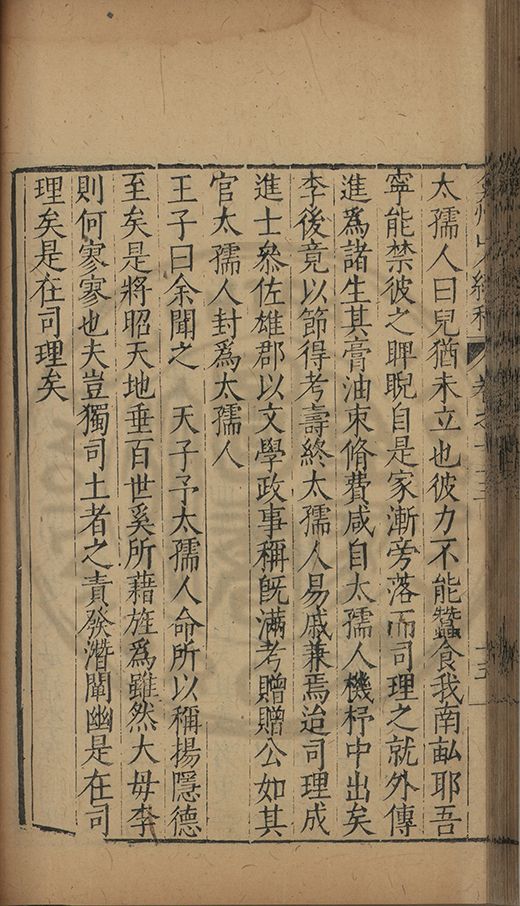 太孺人曰兒猶未立也彼力不能蠶食我南畝耶吾
寧能禁彼之睥睨自是家漸旁落而司理之就外傅
進爲諸生其膏油束脩費咸自太孺人機杼中出矣
李後竟以節得考壽終太孺人易戚兼焉迨司理成
進士叅佐雄郡以文學政事稱旣滿考贈贈公如其
官太孺人封爲太孺人
王子曰余聞之　天子予太孺人命所以稱揚隱德
至矣是將昭天地垂百世奚所藉旌爲雖然大毋李
則何寥寥也夫豈獨司土者之責發潛闡幽是在司
理矣是在司理矣